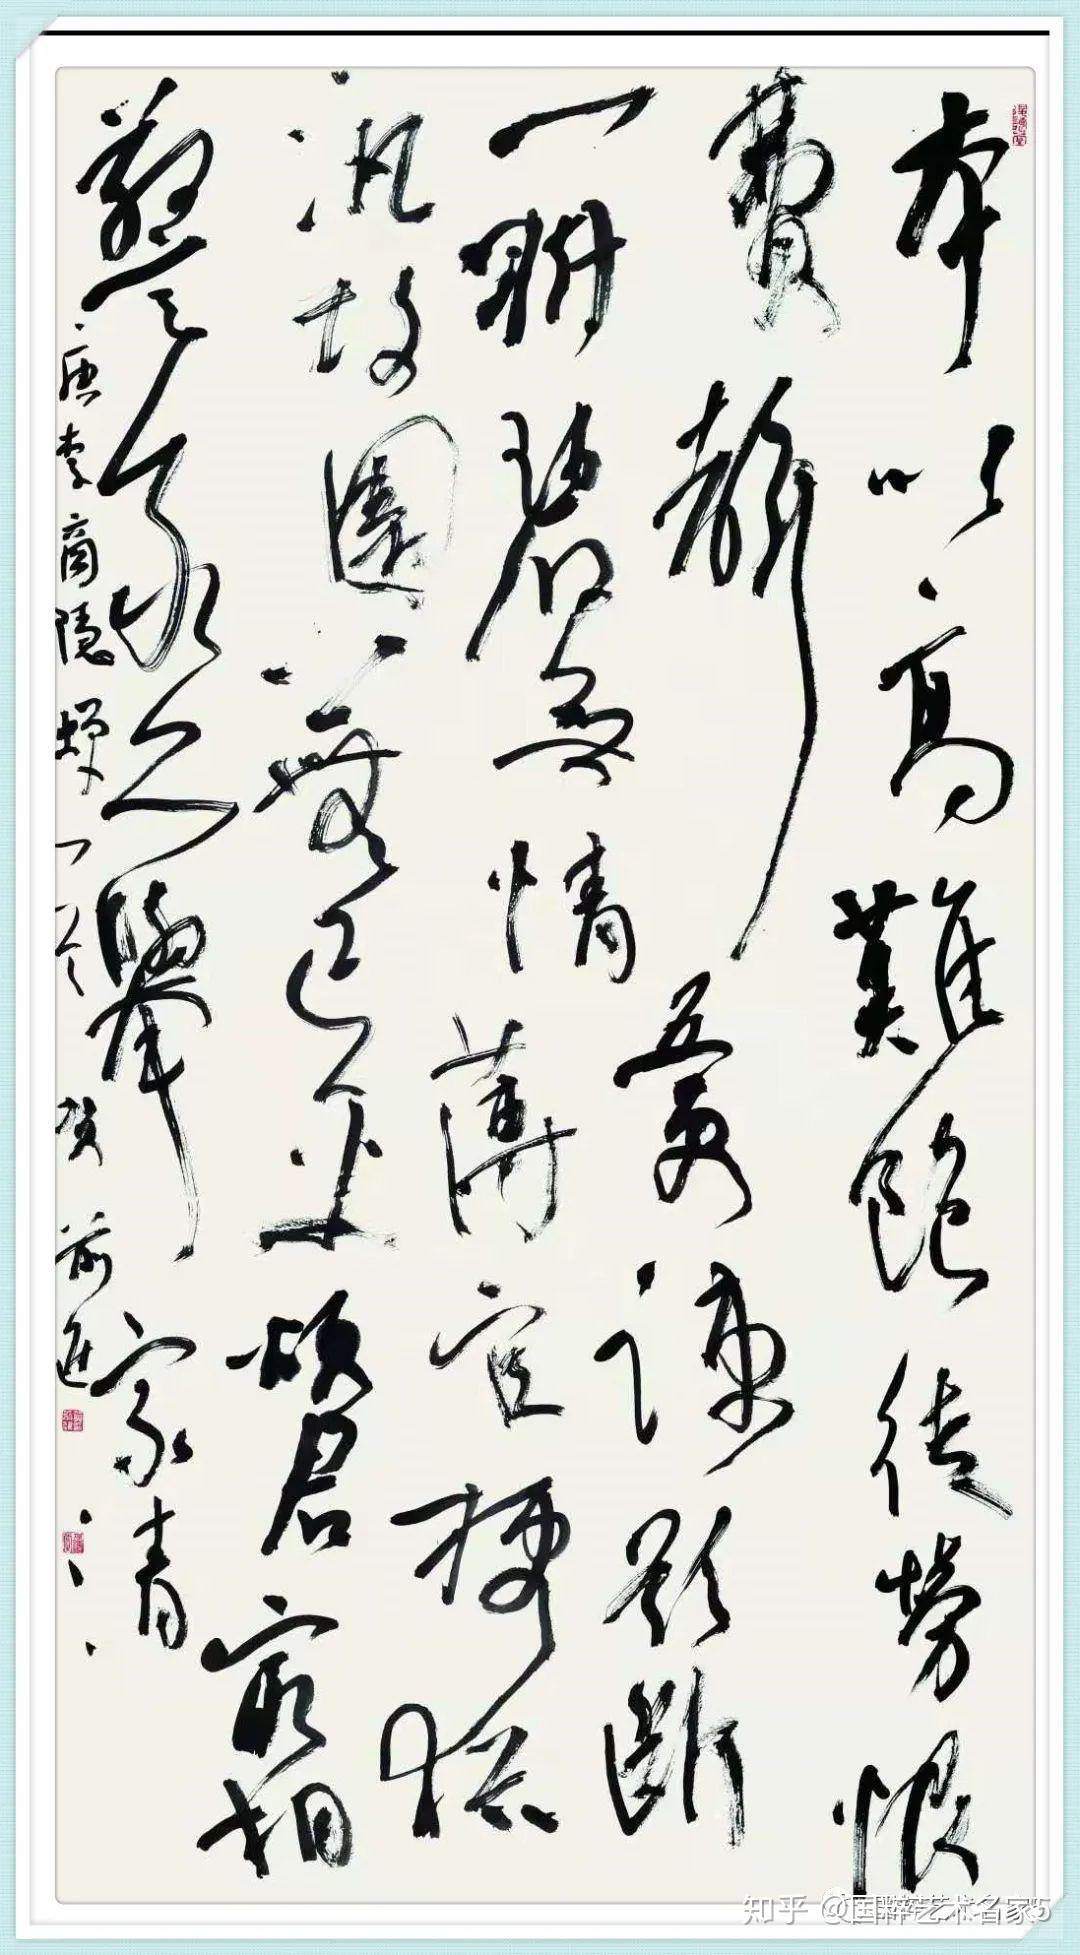 本以高難飽徒勞恨
費聲五更疎欲斷
一樹碧無情薄宦梗猶
汎故園蕪已平煩君最相
警我亦舉家清
唐李商隱蟬 賀前進
知乎 @国粹艺术名家5